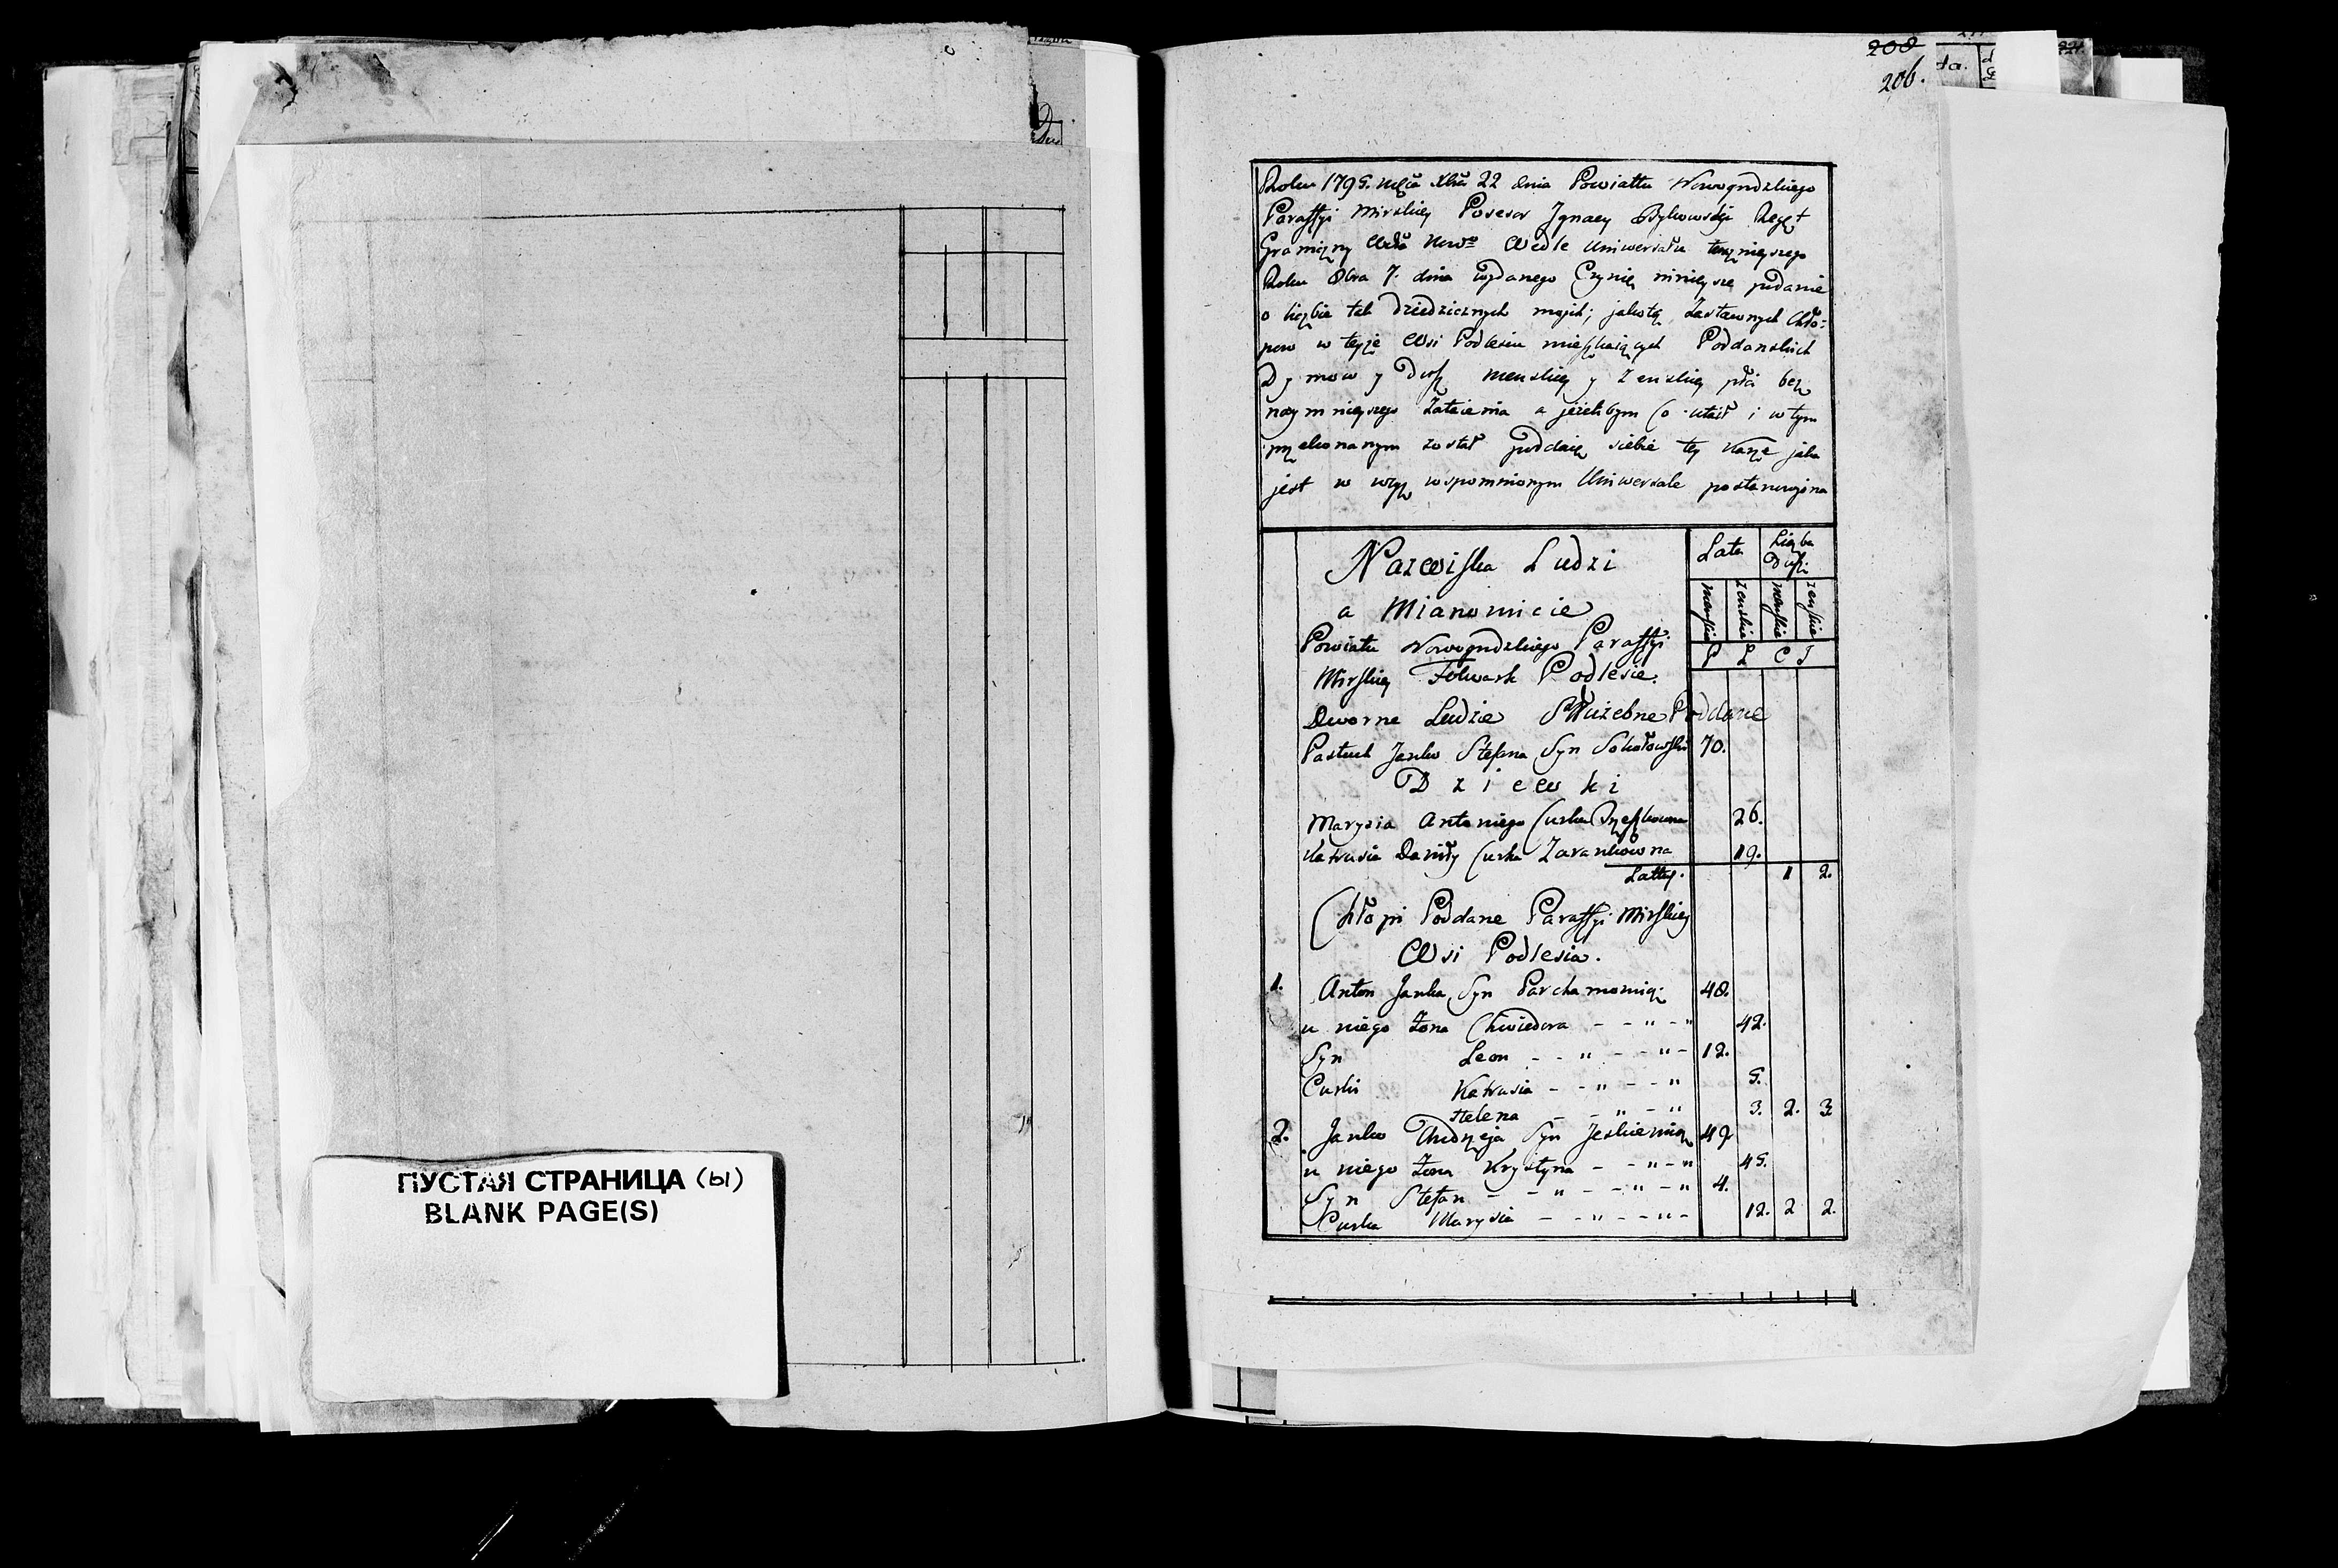 ПУСТАЯ СТРАНИЦА (ы)
BLANK PAGE(S)
208
206.
Roku 1795. Mca Xbra 22 dnia Powiattu Nowogrodzkiego
Paraffyi Mirskiey Posesor Jgnacy Bykowski Regęt
Graniczny Wdztwa Nowo Wedle Uniwersału teraznieyszego
Roku 8bra 7. dnia wydanego Czynię ninieysze podanie
o liczbie tak Dziedzicznych moich; jakotę Zastawnych Chło=
pow w teyze Wsi Podlesiu mieszkaiących Poddanskich
Dymow y Dusz Menskiey y Zenskiey płci bez
naymnieyszego Zataienia a jezelibym co utaił i w tym
przekonanym został poddaię siebie tey Karze jaka
jest w wyz wspomnionym Uniwersale postanowiona
Nazwiska Ludzi
a Mianowicie
Lata
Liczba Duszy
Męskie
Zenskie
Męskie
Zenskie
Powiatu Nowogrodzkiego Paraffyi
Mirskiey Folwark Podlesie.
Dworne Ludzie Słuzebne Poddane
Pastuch Janko Stefana Syn Sokołowski 70.
Dziewki
Marysia Antoniego Curka 26.
Katrusia Daniły Curka Zarankowna 19.
Lattus. 1 2.
Chłopi Poddane Paraffyi Mirskiey
Wsi Podlesia.
1. Anton Janka Syn Parchamowicz 48.
u niego Zona Chwiedora - - " - " 42.
Syn Leon - - " - - " - 12.
Curki Katrusia - - " - - " 5.
Helena - - " - " 3. 2. 3.
2. Janko Andrzeja Syn Jeskiewicz 49
u niego Zona Krystyna - - " - " 45.
Syn Stefan - - " - - " - " 4.
Curka Marysia - - " - - " - 12. 2 2.